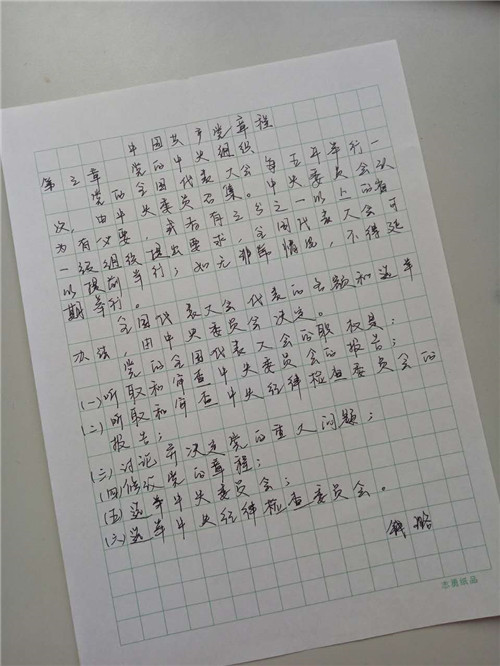 中国共产党章程
第三章 党的中央组织
党的全国代表大会每五年举行一
次，由中央委员会召集。中央委员会认
为有必要，或者有三分之一以上的省
一级组织提出要求，全国代表大会可
以提前举行；如无非常情况，不得延
期举行。
全国代表大会代表的名额和选举
办法，由中央委员会决定。
党的全国代表大会的职权是：
(一)听取和审查中央委员会的报告；
(二)听取和审查中央纪律检查委员会的
报告；
(三)讨论并决定党的重大问题；
(四)修改党的章程；
(五)选举中央委员会；
(六)选举中央纪律检查委员会。
志晨纸品